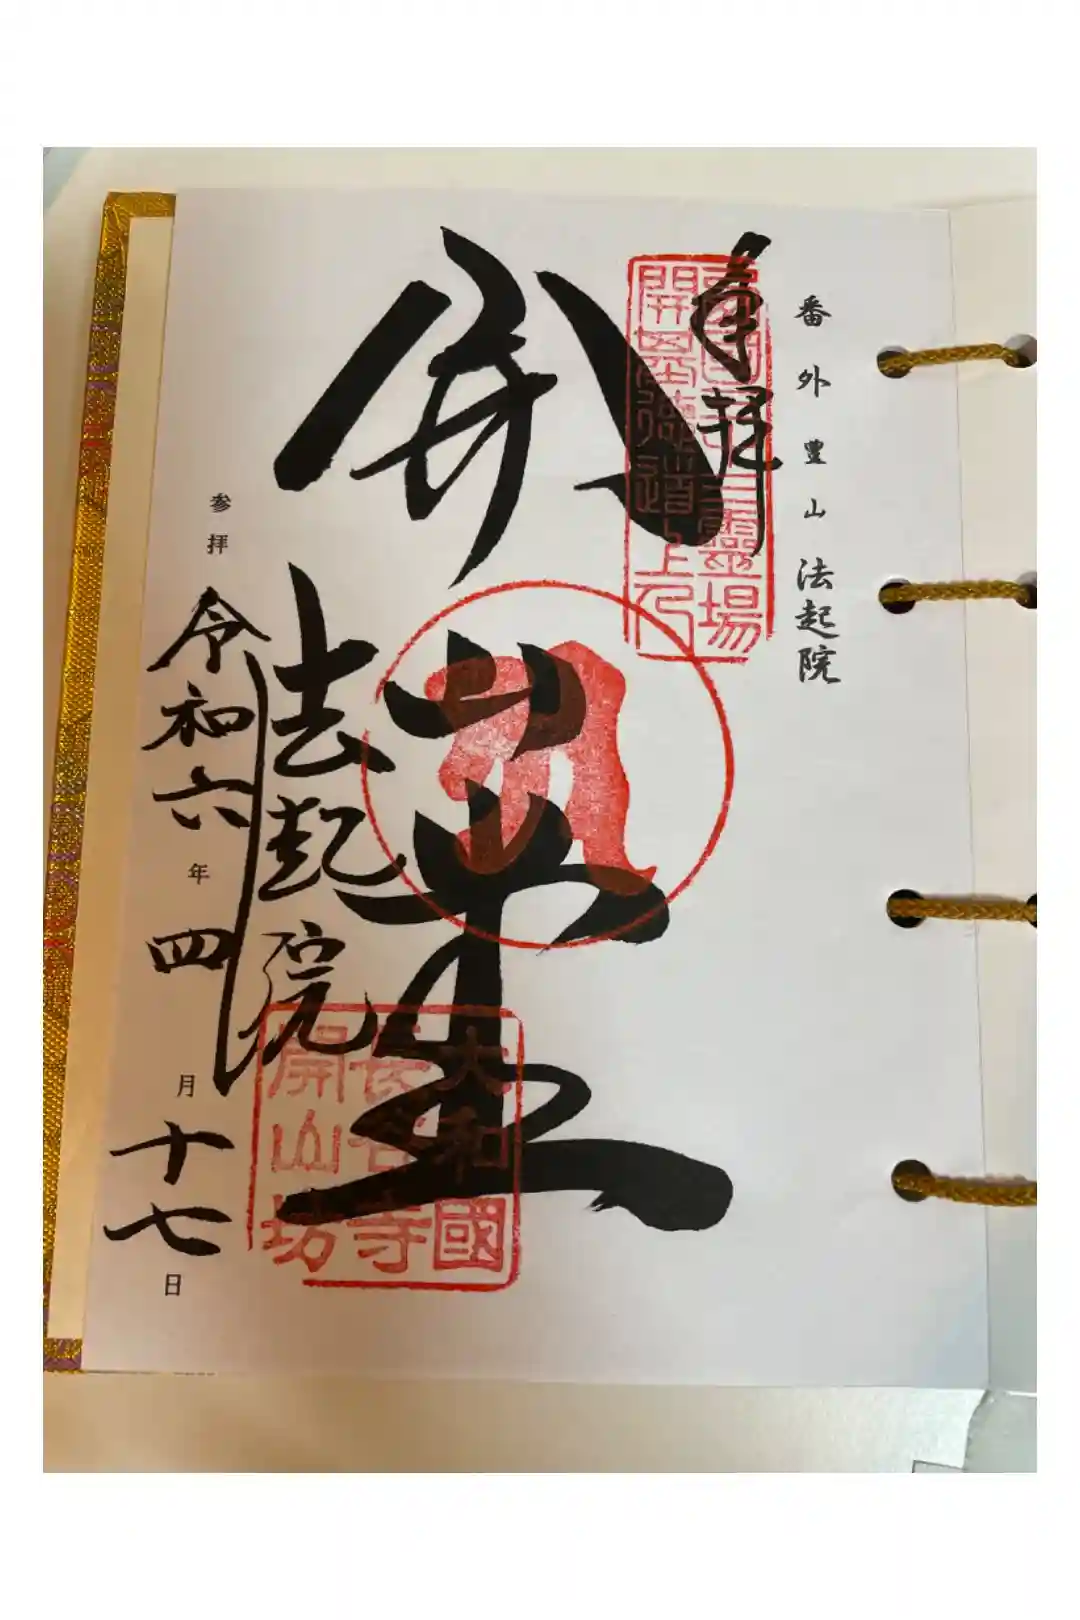 番外豊山 法起院
奉拝
西国三十三霊場
開基徳道上人
開山堂
法起院
大和國
長谷寺
開山坊
参拝
令和六年四月十七日